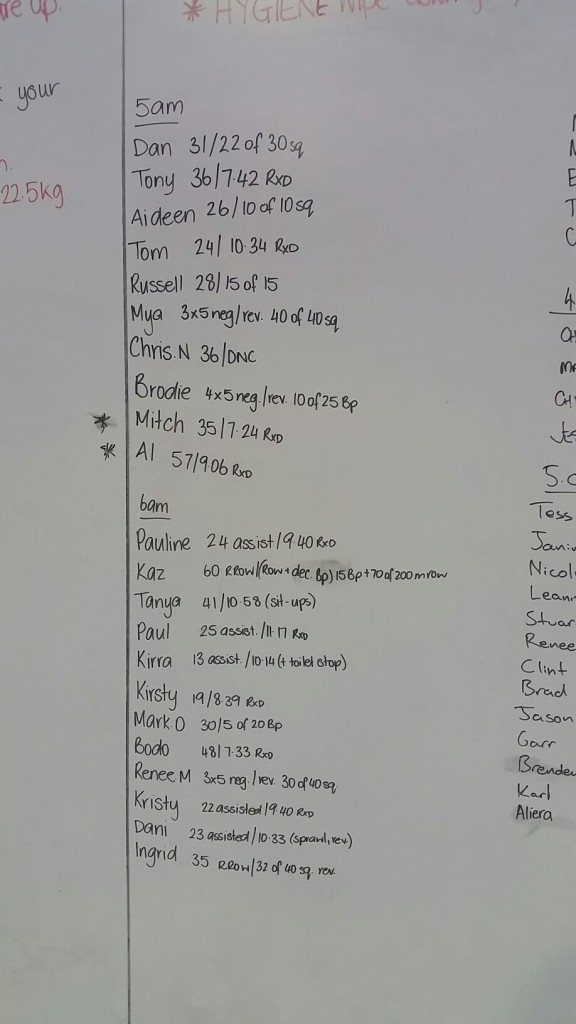 re up.
* HYGIENE wipe
your
22.5kg
5am
Dan 31/22 of 30 sq
Tony 36/7.42 RxD
Aideen 26/10 of 10 sq
Tom 24/10.34 RxD
Russell 28/15 of 15
Mya 3x5 neg/rev. 40 of 40 sq
Chris.N 36/DNC
Brodie 4x5 neg./rev. 10 of 25 Bp
* Mitch 35/7.24 RxD
* Al 57/9.06 RxD
6am
Pauline 24 assist/9.40 RxD
Kaz 60 RROW/(Row + dec. Bp) 15 Bp + 70 of 200m row
Tanya 41/10.58 (sit-ups)
Paul 25 assist./11.17 RxD
Kirra 13 assist./10.14 (+ toilet stop)
Kirsty 19/8.39 RxD
Mark.O 30/5 of 20 Bp
Bodo 48/7.33 RxD
Renee M 3x5 neg./rev. 30 of 40 sq.
Kristy 22 assisted/9.40 RxD
Dani 23 assisted/10.33 (sprawl, rev)
Ingrid 35 RROW/32 of 40 sq. rev.
4
5.
Tess
Jani
Nicol
Leann
Stuar
Renee
Clint
Brad
Jason
Garr
Brende
Karl
Aliera